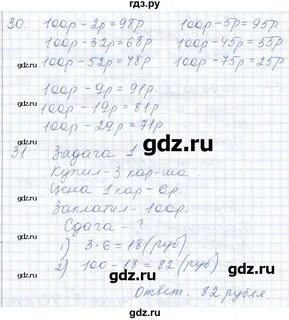 гдз.ру
30. 100р - 2р = 98р 100р - 5р = 95р
100р - 32р = 68р 100р - 45р = 55р
100р - 52р = 48р 100р - 75р = 25р
100р - 9р = 91р.
100р - 19р = 81р.
100р - 29р = 71р.
gdz.ru
31 Задача 1
Купил - 3 кар-ша
Цена 1 кар - 6р.
Заплатил - 100р.
Сдача - ?
1) 3 · 6 = 18 (руб)
2) 100 - 18 = 82 (руб)
Ответ. 82 рубля.
gdz.ru